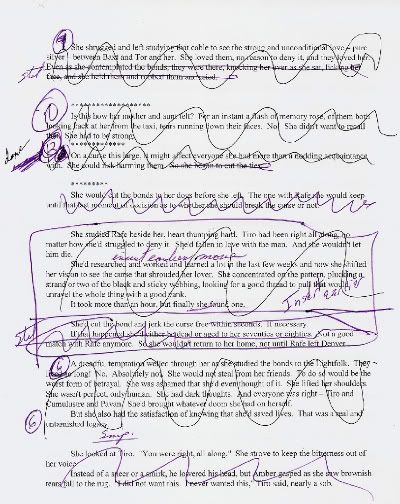 9
She shrugged and left studying that cable to see the strong and unconditional love – pure
silver – between Baxt and Tor and her. She loved them, no reason to deny it, and they loved her.
Even as she contemplated the bonds, they were there, knocking her over as she sat, licking her
face, and she held them and
10
******************
Is this how her mother and aunt felt? For an instant a flash of memory rose, of them both
looking back at her from the taxi, tears running down their faces. No. She didn't want to recall
that. She had to be strong.
******************
done
12
On a curse this large, it might affect everyone she had more than a nodding acquaintance
with. She could risk harming them. So she began to cut the ties.
*********
She would cut the bonds to her dogs before she left. The one with Rafe she would keep
until that last moment of decision as to whether she should break the curse or not.
She studied Rafe beside her, heart thumping hard. Tiro had been right all along, no
matter how she'd struggled to deny it. She'd fallen in love with the man. And she wouldn't let
him die.
She'd researched and worked and learned a lot in the last few weeks and now she shifted
her vision to see the curse that shrouded her lover. She concentrated on the pattern, plucking a
strand or two of the black and sticky webbing, looking for a good thread to pull that would
unravel the whole thing with a good yank.
It took more than an hour, but finally she found one.
Insert earlier
She'd cut the bond and jerk the curse free within seconds. If necessary.
If that happened she'd either be dead or aged to her seventies or eighties. Not a good
match with Rafe anymore. So she wouldn't return to her home, not until Rafe left Denver.
6
A dreadful temptation welled through her as she studied the bonds to the Lightfolk. They
long! No. Absolutely not. She would not steal from her friends. To do so would be the
worst form of betrayal. She was ashamed that she'd even thought of it. She lifted her shoulders.
She wasn't perfect, only human. She had dark thoughts. And everyone was right – Tiro and
Cumulustre and Pavan/ She'd brought whatever doom she had on herself.
6
But she also had the satisfaction of knowing that she'd saved lives. That was a real and
untarnished
She looked at Tiro. "You were right, all along." She strove to keep the bitterness out of
her voice.
Instead of a sneer or a smirk, he lowered his head, but Amber gasped as she saw brownish
tears fall to the rug. "I did not want this. I never wanted this," Tiro said, nearly a sob.